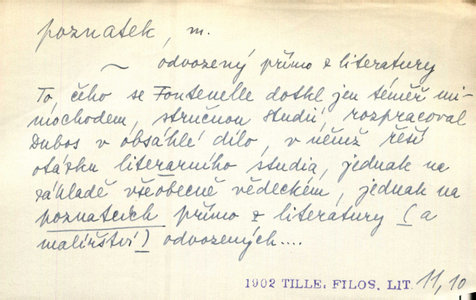 poznatek, m.
~ odvozený přímo z literatury
To, čeho se Fontenelle dotkl jen téměř mi-
mochodem, stručnou studií, rozpracoval
Dubos v obsáhlé dílo, v němž řeší
otázku literarního studia, jednak na
základě všeobecně vědeckém, jednak na
poznatcích přímo z literatury (a
malířství) odvozených....
1902 TILLE, FILOS. LIT. 11, 10